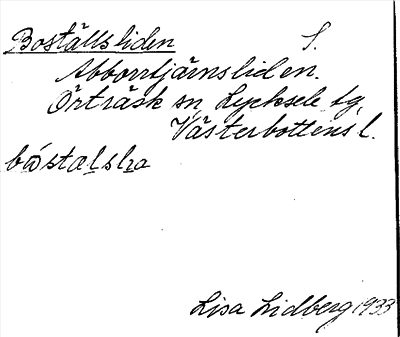 Boställsliden S.
Abborrtjärnsliden.
Örträsk sn, Lycksele tg,
Västerbottens l.
Lisa Lidberg 1933